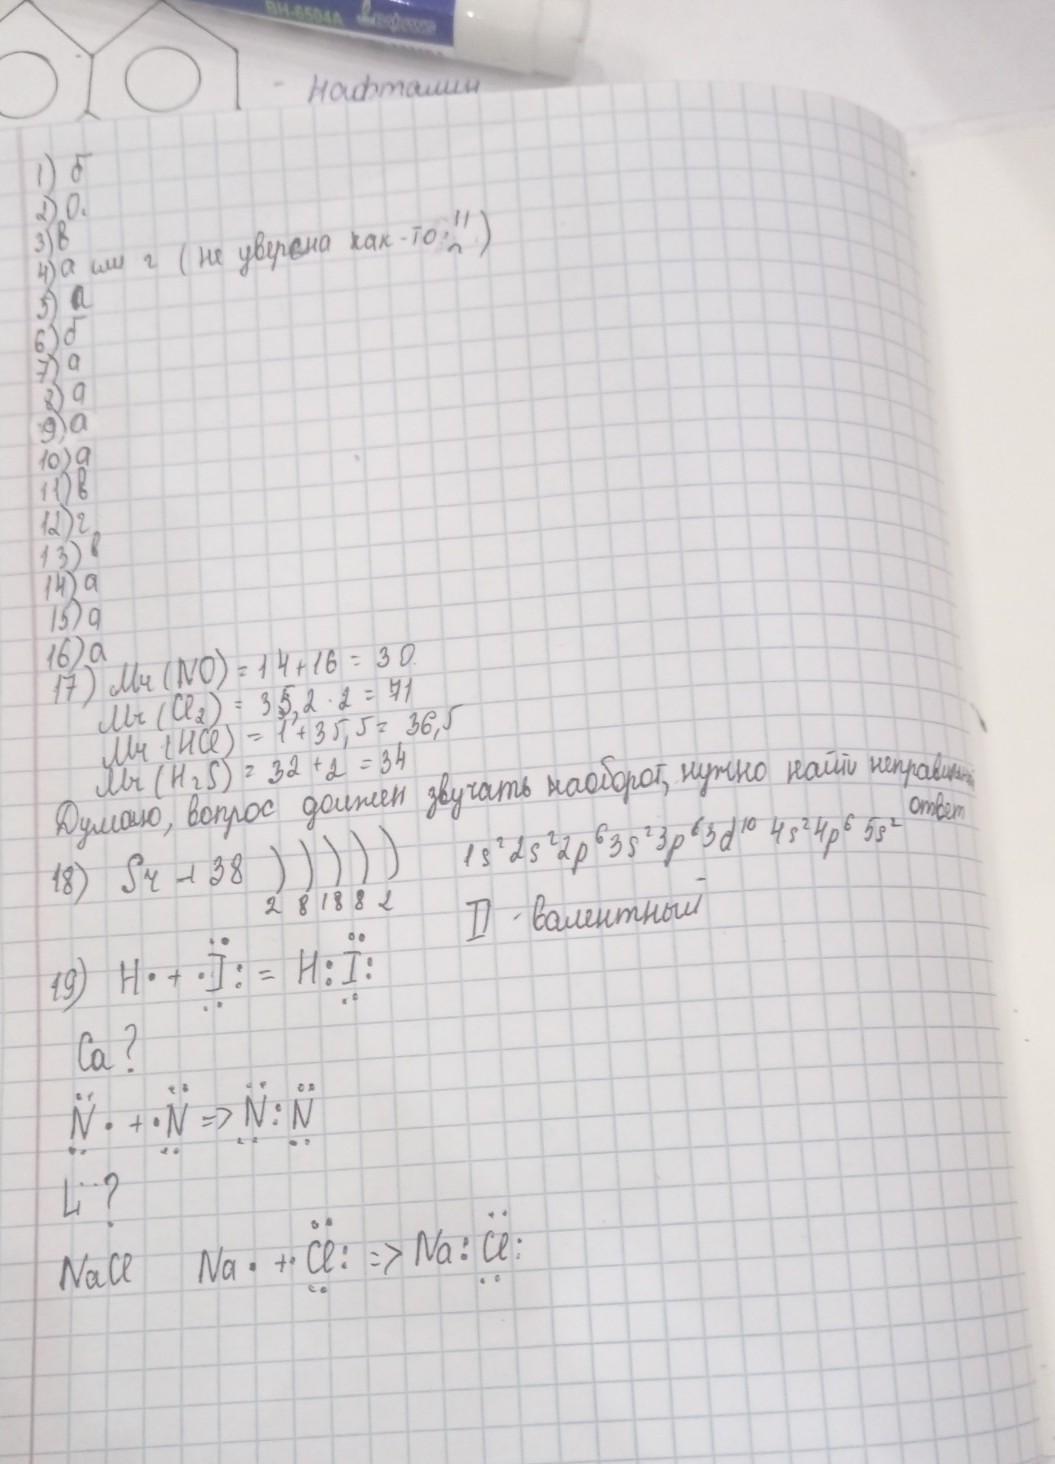 ВН-6504А
- Нафталин
1) б
2) а
3) в
4) а или г (не уверена как-то :")
5) а
6) б
7) а
8) а
9) а
10) а
11) в
12) г
13) в
14) а
15) а
16) а
17) Mr (NO) = 14+16 = 30
Mr (Cl₂) = 35,2 · 2 = 71
Mr (HCl) = 1+35,5 = 36,5
Mr (H₂S) = 32+2 = 34
Думаю, вопрос должен звучать наоборот, нужно найти неправильный
ответ
18) Sr + 38 ) ) ) ) ) 1s² 2s² 2p⁶ 3s² 3p⁶ 3d¹⁰ 4s² 4p⁶ 5s²
2 8 18 8 2 II - валентный
19) H· + ·I: = H:I:
Ca?
N· + ·N => N:N
Li?
NaCl Na· + ·Cl: => Na:Cl: